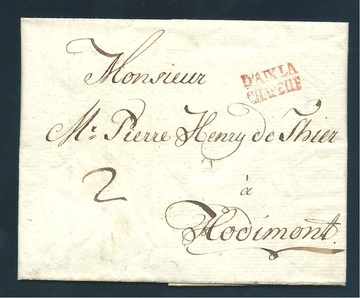 Monsieur
D'AIX LA
CHAPELLE
Mr. Pierre Henry de Thier
2
à
Hodimont.